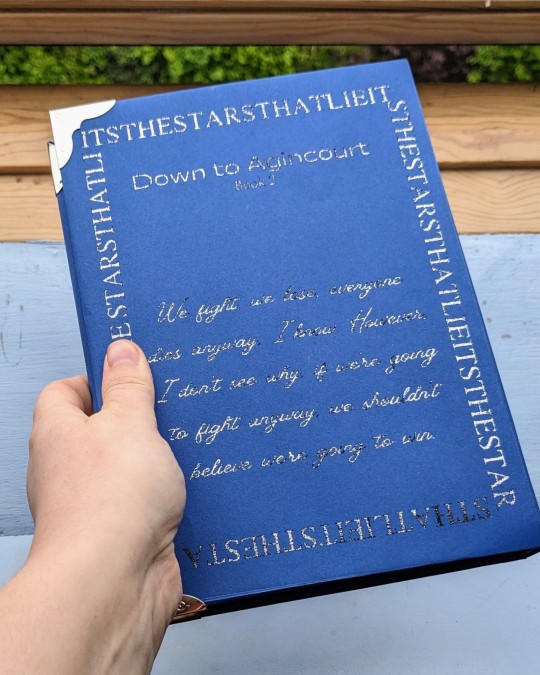 ITSTHESTARSTHATLIEIT
STHESTARSTHATLIEITSTHESTAR
STHATLIEITSTHESTA
ESTARSTHATLI
Down to Agincourt
Book 1
We fight, we lose, everyone
dies anyway. I know. However,
I don't see why, if we're going
to fight anyway, we shouldn't
believe we're going to win.